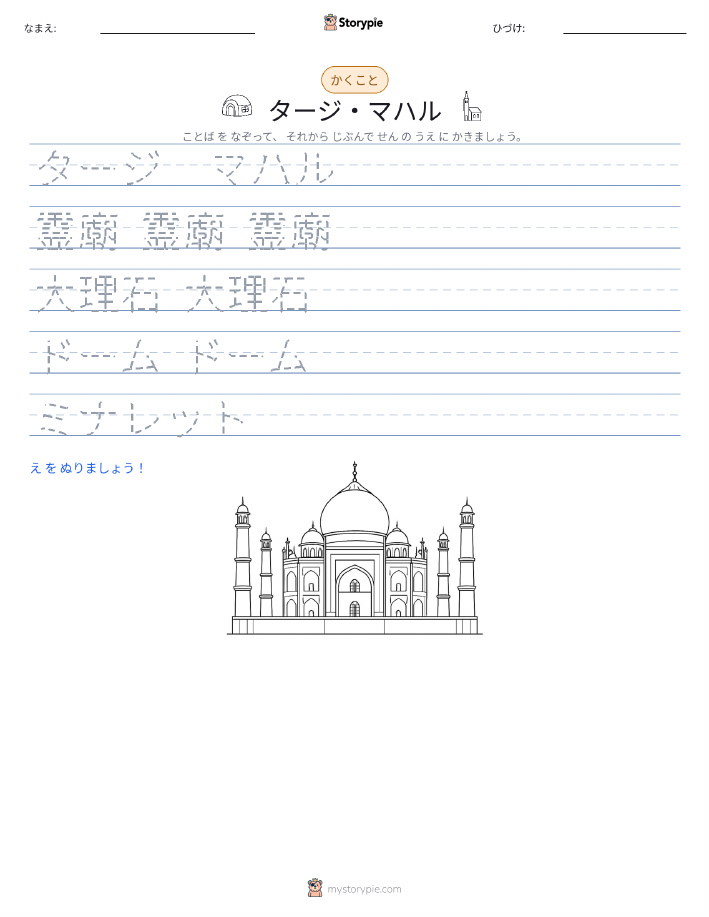 なまえ:
Storypie
ひづけ:
かくこと
タージ・マハル
ことば を なぞって、 それから じぶんで せん の うえ に かきましょう。
タージ マハル
霊廟 霊廟 霊廟
大理石 大理石
ドーム ドーム
ミナレット
え を ぬりましょう！
mystorypie.com